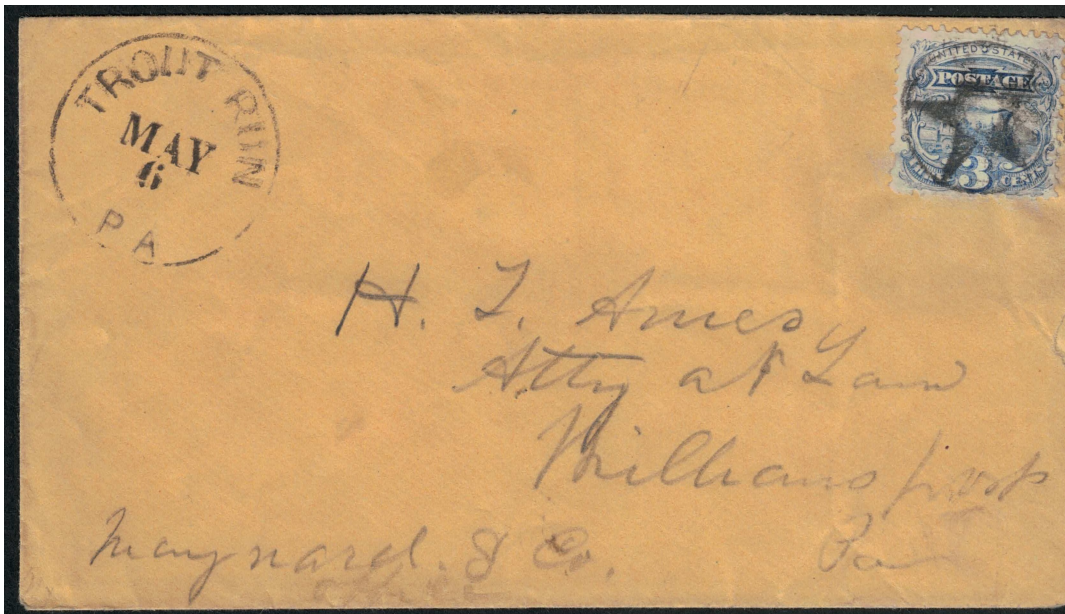 TROUT RUN
MAY
6
PA
UNITED STATES
POSTAGE
3 CENTS
H. T. Ames
Atty at Law
Williamsport
Pa
Maynard & Co.